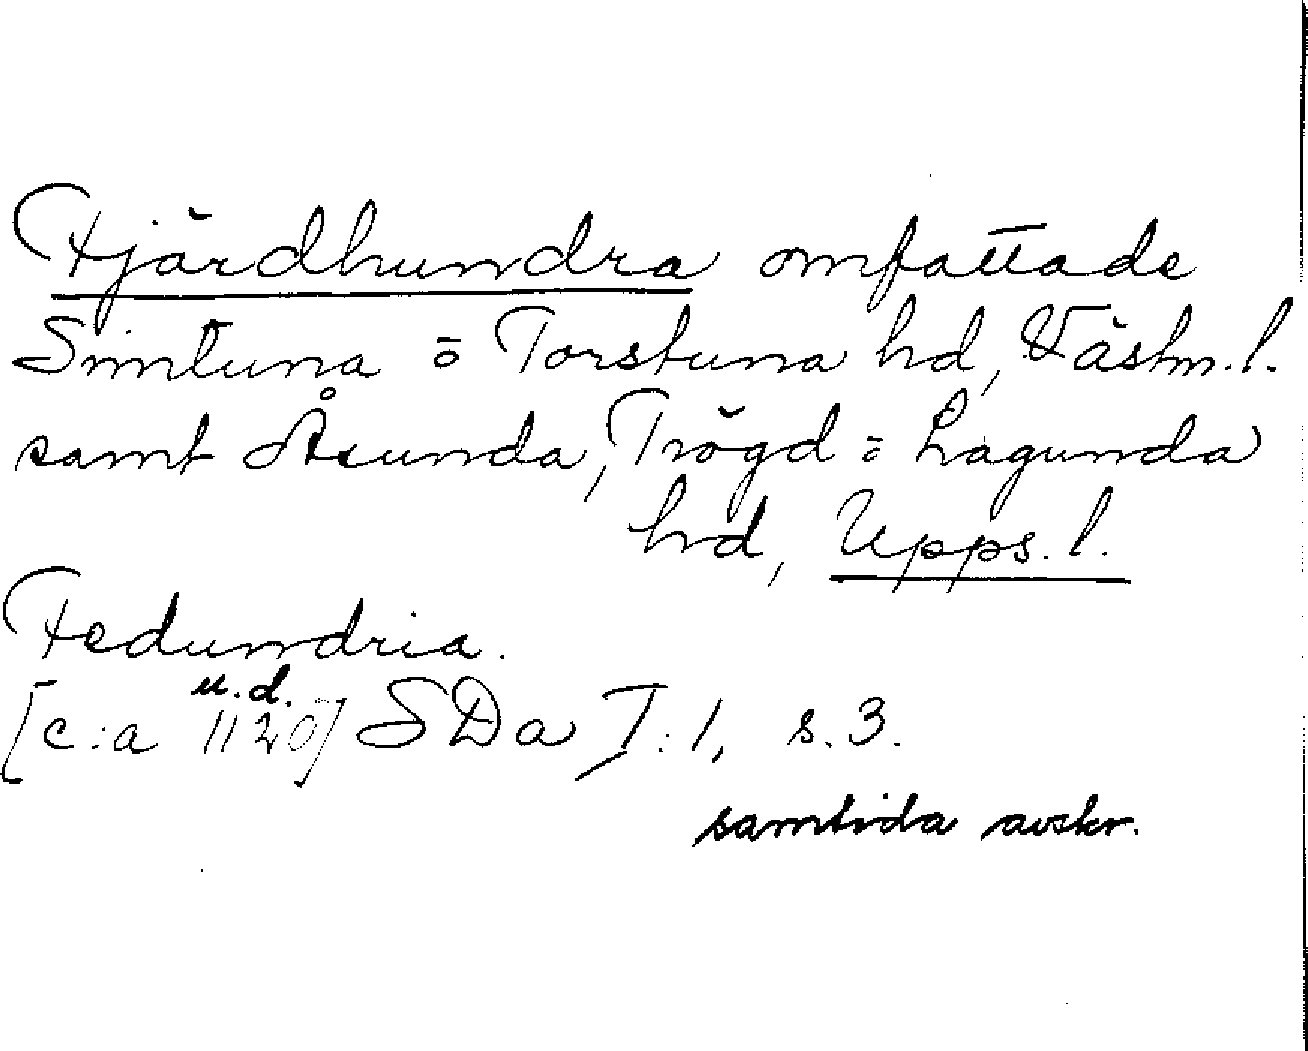 Fjärdhundra omfattade
Simtuna ō Torstuna hd, Västm. l.
samt Åsunda, Trögd ō Lagunda
hd, Upps. l.
Fedundria.
u.d.
[c:a 1120] SDa I:1, s. 3.
samtida avskr.